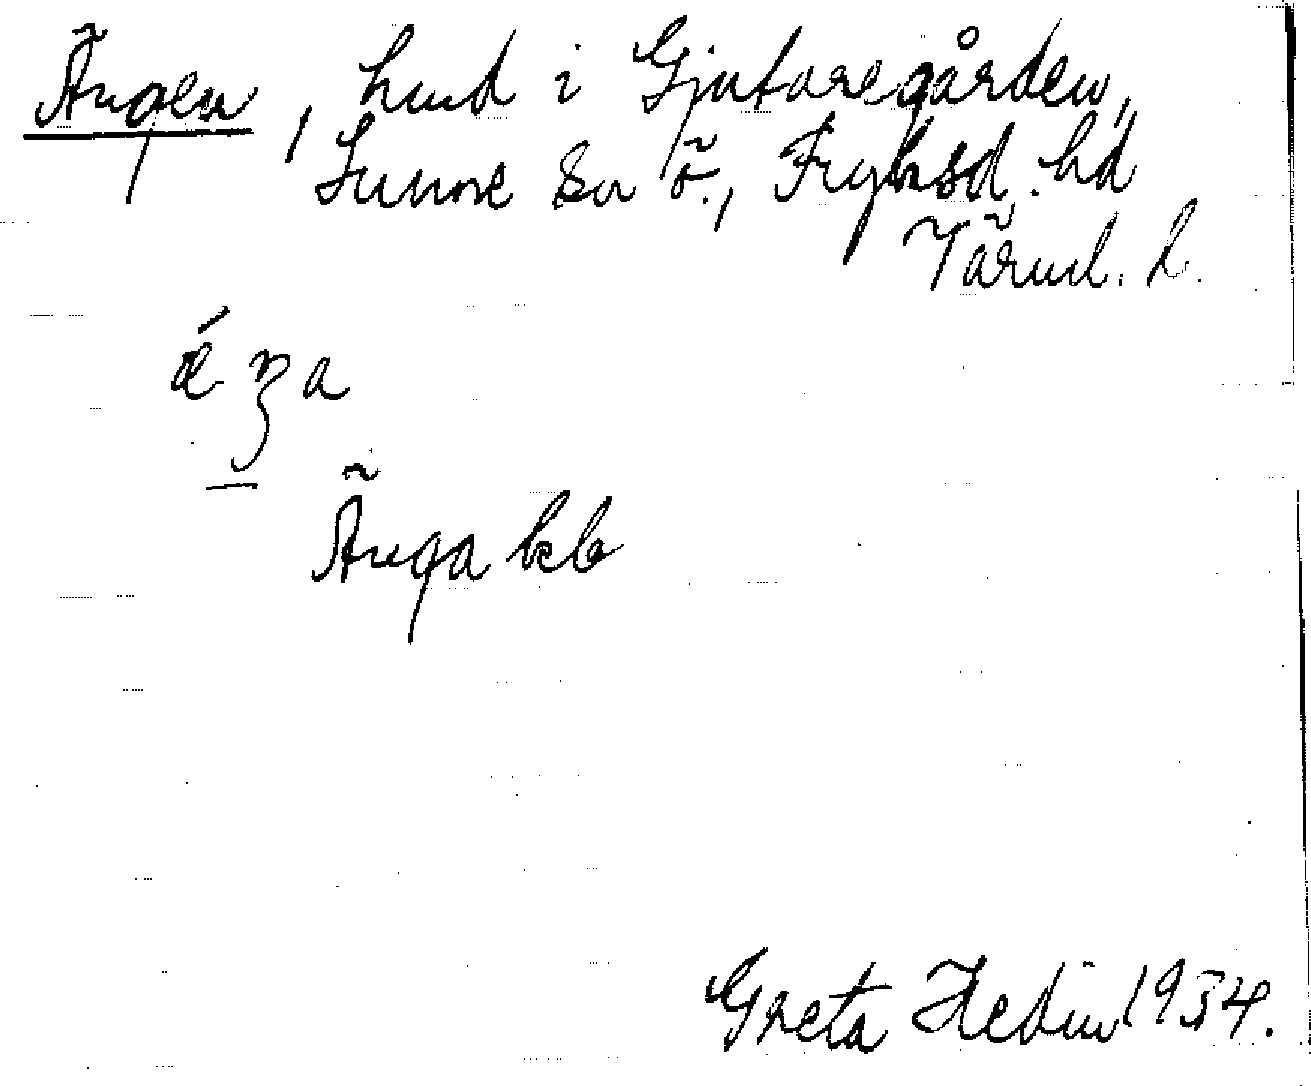 Ängen, hmd i Gjutaregården,
Sunne sn Ö., Fryksd. hd
Värml. l.
ǽŋa
Änga beb
Greta Hedin 1934.